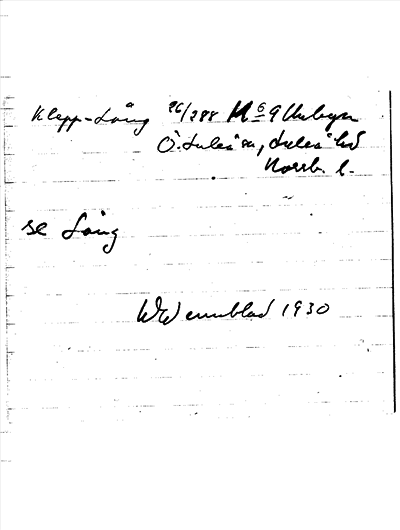 Klepp-Lång 96/288 N:o 9 Unbyn
Ö. Luleå sn, Luleå hd
Norrb. l.
se Lång
W Wennblad 1930